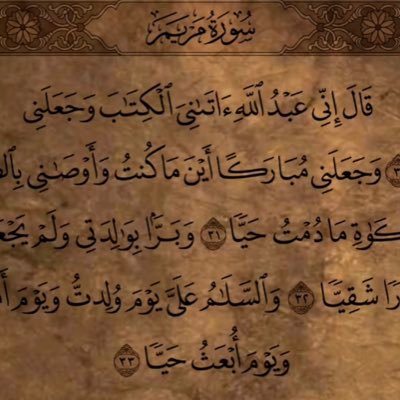 سُورَةُ مَرْيَم
قَالَ إِنِّى عَبْدُ ٱللَّهِ ءَاتَىٰنِىَ ٱلْكِتَٰبَ وَجَعَلَنِى
وَجَعَلَنِى مُبَارَكًا أَيْنَ مَا كُنتُ وَأَوْصَٰنِى
مَا دُمْتُ حَيًّا ٣١ وَبَرًّۢا بِوَٰلِدَتِى وَلَمْ
شَقِيًّا ٣٢ وَٱلسَّلَٰمُ عَلَىَّ يَوْمَ وُلِدتُّ وَيَوْمَ
وَيَوْمَ أُبْعَثُ حَيًّا ٣٣